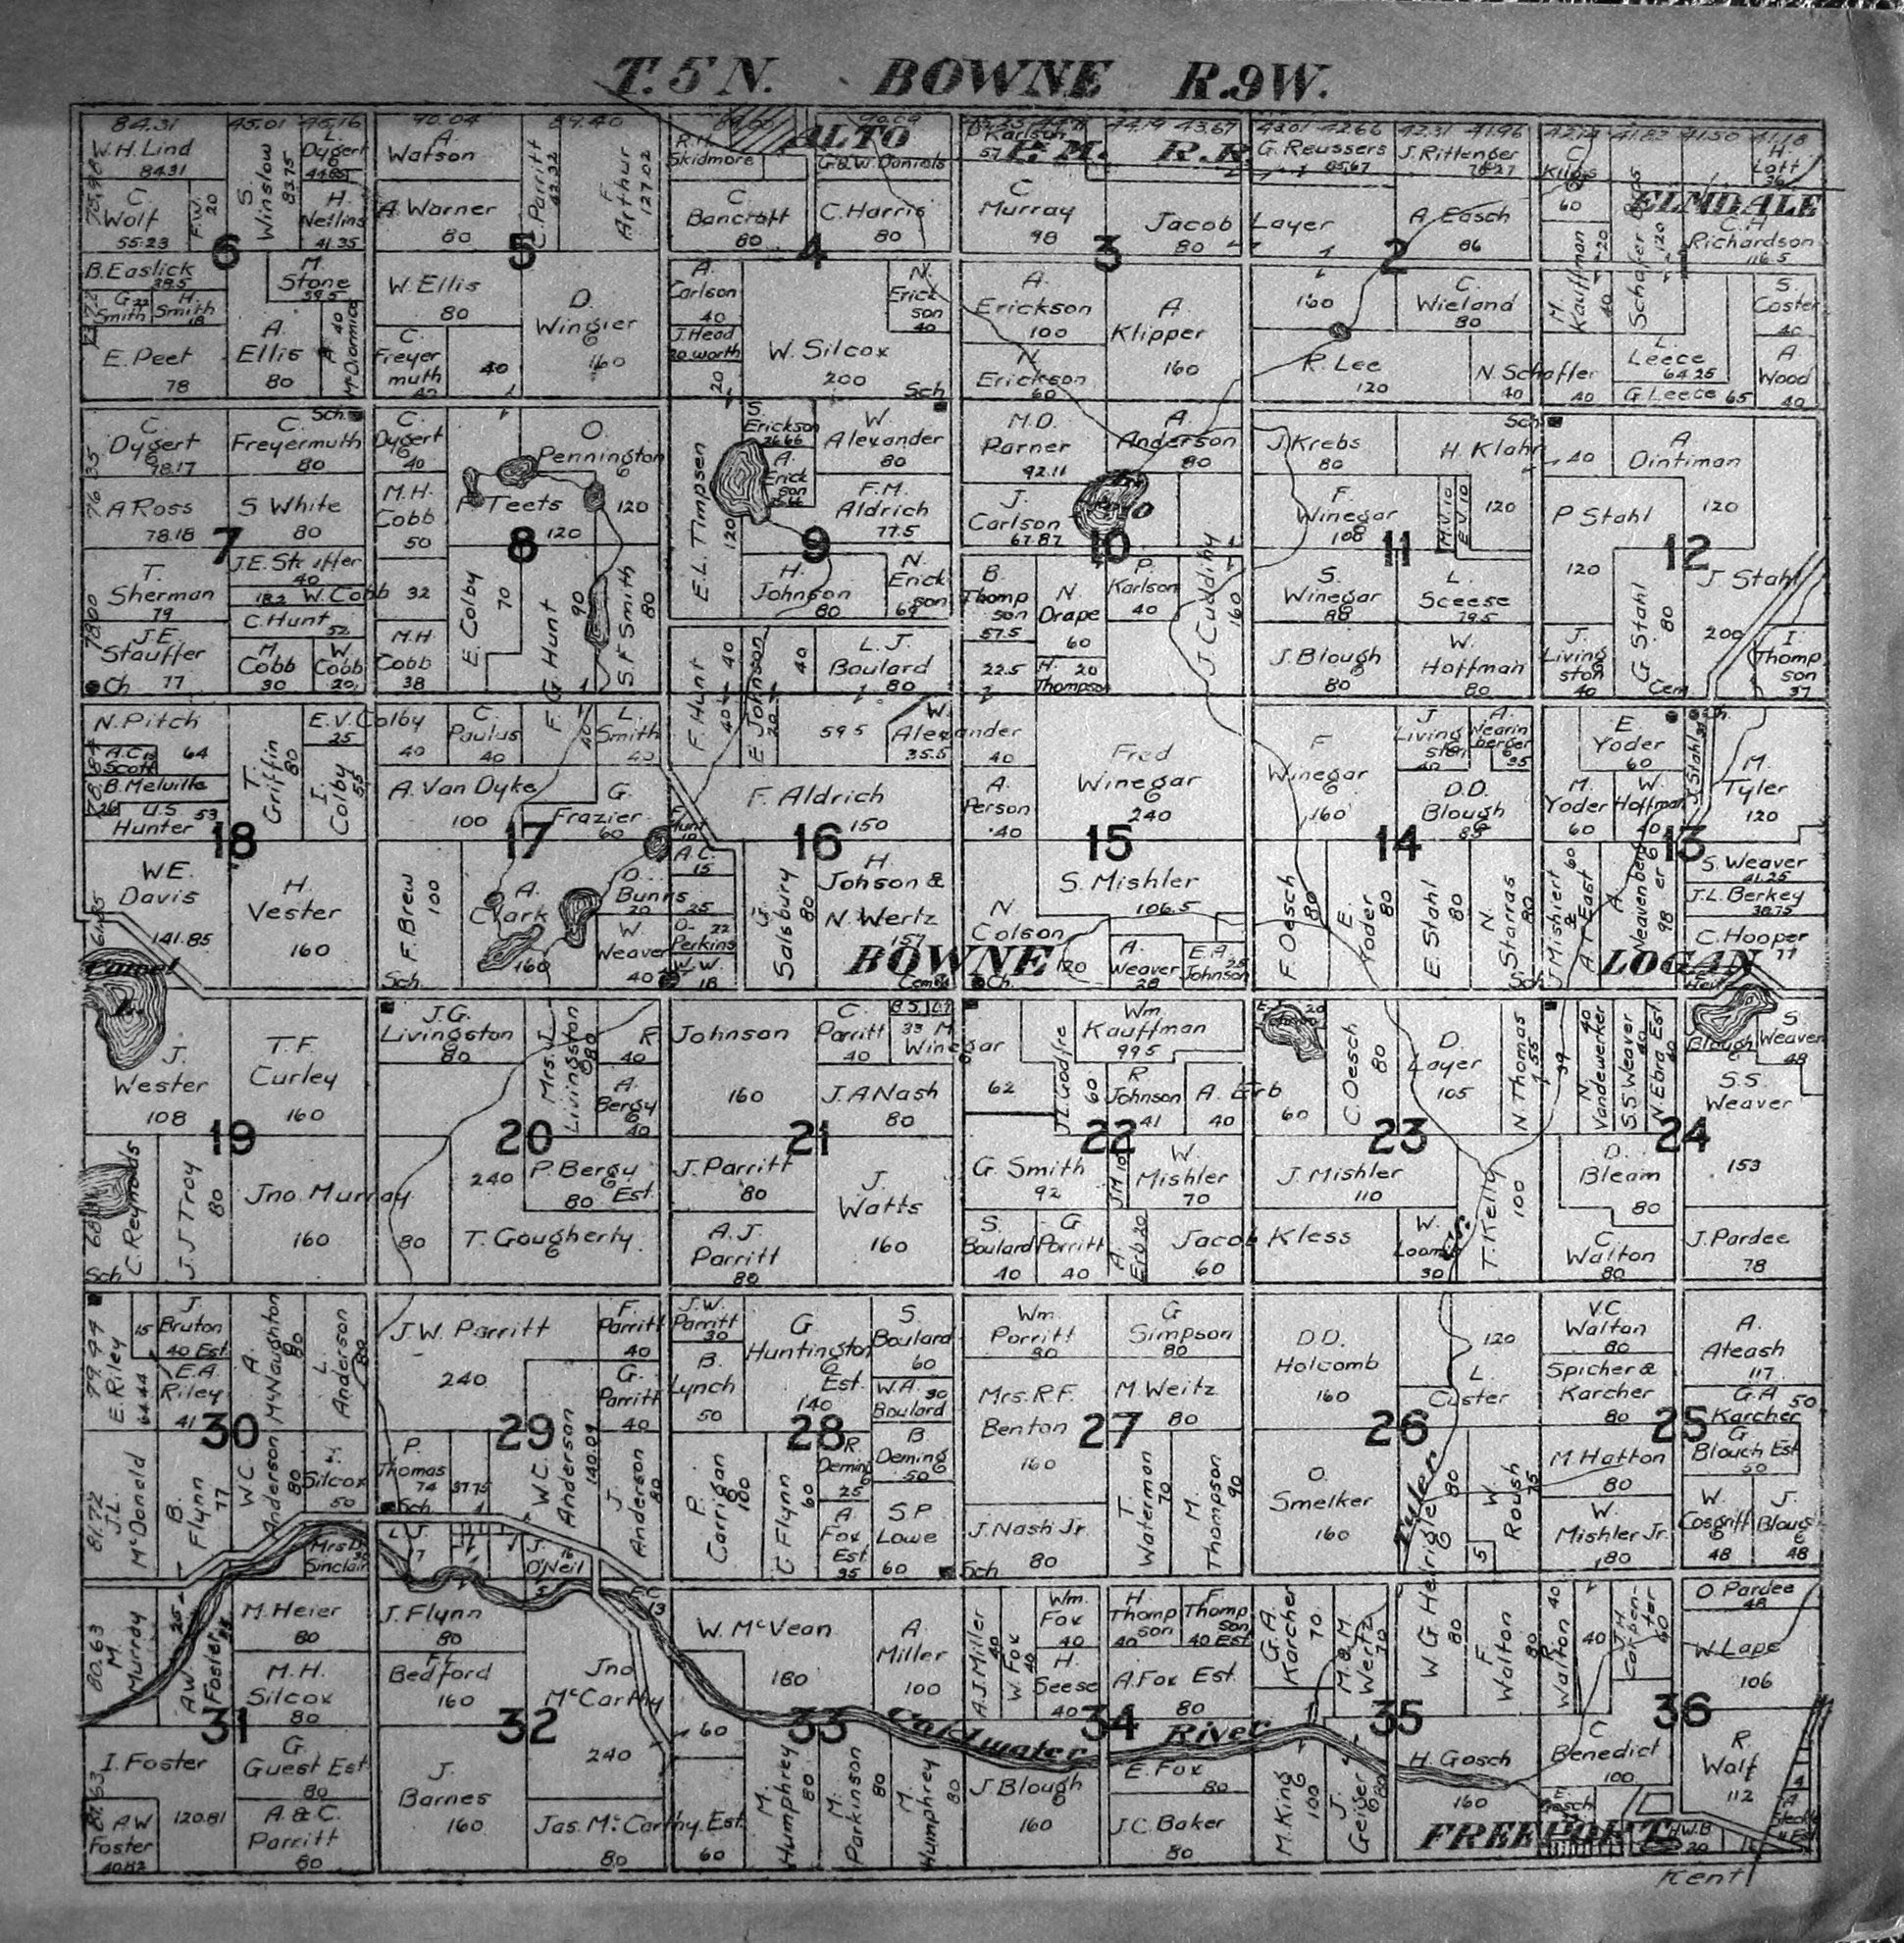 T. 5 N. BOWNE R. 9 W.
84.31 45.01 45.16 90.04 89.40
ALTO
P.M. R.R.
44.19 43.67 43.01 42.66 42.31 41.96 41.82 41.50 41.18
W.H. Lind
84.31
C.
Wolf
55.23
F.W.
20
S.
Winslow
83.75
L.
Dygert
H.
Netlins
41.35
6
B. Easlick
38.5
G. 22
Smith
H.
Smith
18
E. Peet
78
M.
Stone
39.5
A.
Ellis
80
A. 40
McDiarmid
A.
Watson
A. Warner
80
C. Parritt
42.32
F.
Arthur
127.02
5
W. Ellis
80
C.
Freyer
muth
40
40
D.
Wingier
160
R.H.
Skidmore
G. & W. Daniels
C.
Bancroft
80
C. Harris
80
4
A.
Carlson
40
J. Head
20 worth
20
W. Silcox
200
N.
Erick
son
40
Sch
P. Karlson
57
C
Murray
98
Jacob Layer
80
3
A.
Erickson
100
N.
Erickson
60
A.
Klipper
160
G. Reussers
85.67
J. Rittenger
A. Easch
86
2
160
C.
Wieland
80
R. Lee
120
N. Schaffer
40 40
60
ELMDALE
H.
Lott
36
C.H.
Richardson
116.5
M.
Kauffman
40
Schafer
120
S.
Caster
40
L.
Leece
64.25
G. Leece 65
A
Wood
40
C.
Dygert
78.17
C.
Freyermuth
80
Sch.
A Ross
78.18
S White
80
7
T.
Sherman
79
J.E. Stauffer
40
18.2 W. Cobb 32
C. Hunt
52
J.E.
Stauffer
Ch 77
M.
Cobb
30
W.
Cobb
20
C.
Dygert
40
M.H.
Cobb
50
M.H.
Cobb
38
O.
Pennington
120
P. Teets
120
8
E. Colby
70
F G Hunt
90
S.F. Smith
80
E.L. Timpsen
120
S.
Erickson
26.66
A.
Erick
son
W.
Alexander
80
F.M.
Aldrich
77.5
9
H.
Johnson
80
N.
Erick
son
F. Hunt
40
40
E Johnson
20
40
L.J.
Boulard
80
M.D.
Parner
92.11
A.
Anderson
80
J.
Carlson
67.87
10
B.
Thomp
son
57.5
22.5
N.
Drape
60
H. 20
Thompson
P.
Karlson
40
J Cuddihy
160
J. Krebs
80
H. Klahn
40
F.
Winegar
100
M.V. 10
E.V. 10
120
11
S.
Winegar
80
L.
Sceese
79.5
J. Blough
80
W.
Hoffman
80
Sch
A
Ointiman
120
P Stahl
120
12
J. Stahl
200
G Stahl
80
J.
Living
ston
40
Cem
I.
Thomp
son
37
N. Pitch
64
A.C.
Scott
B. Melville
26
U.S.
Hunter
53
T.
Griffin
80
E.V. Colby
25 40
I.
Colby
55
18
W.E.
Davis
141.85
H.
Vester
160
C.
Paulus
40
L.
Smith
40
A. Van Dyke
100
G.
Frazier
60
17
F. Brew
100
A.
Clark
160
O.
Bunns
20
W.
Weaver
40
Sch
59.5
W.
Alexander
35.5 40
F. Aldrich
150
F.
Hunt
10
A.C.
15
25
O. 22
Perkins
W.W.
18
16
G.
Salsbury
80
H.
Johson &
N. Wertz
157
BOWNE
Cem
Ch.
A.
Person
40
Fred
Winegar
240
15
S. Mishler
106.5
N
Colson
120
A.
Weaver
28
E.A.
Johnson
25
F
Winegar
160
J
Living
ston
40
A.
Wearin
berger
35
D.D.
Blough
85
14
F. Oesch
80
E.
Yoder
80
E. Stahl
80
N.
Starras
80
Sch
E.
Yoder
60
J. Stahl
Ch.
M.
Tyler
120
M.
Yoder
60
W.
Hoffman
40
13
J Mishlert
60
A. T East
A
Neavenberger
98
S. Weaver
41.25
J.L. Berkey
38.75
C. Hooper
77
LOGAN
J.
Wester
108
T.F.
Curley
160
19
C. Reynolds
J.J Troy
80
Jno. Murray
160 80
Sch
J.G.
Livingston
80
Mrs. J.
Livingston
80
R Johnson
40 160
A.
Bergy
40
20
240
P. Bergy
80 Est.
T. Gougherty
C.
Parritt
40
33 M
Winegar
62
J.A. Nash
80
21
J. Parritt
80
J.
Watts
160
A.J.
Parritt
80
Wm.
Kauffman
99.5
J.L. Godfrey
60
R.
Johnson
41
A. Erb
40 60
22
G. Smith
92
J.M. 10
W.
Mishler
70
S.
Boulard
40
G
Porritt
40
A.
Erb 20
Jacob Kless
60
C. Oesch
80
D.
Layer
105
N Thomas
1.55
23
J. Mishler
110
W.
Loomis
30
T. Kelly
100
39
N.
Vandewerker
40
S.S Weaver
40
N. Ebra Est
40
Blough
S
Weaver
48
S.S.
Weaver
153
24
D.
Bleam
80
C.
Walton
80
J. Pardee
78
79.44
E. Riley
64.44
15
J.
Bruton
40 Est.
E.A.
Riley
41
A.
McNaughton
80
L.
Anderson
80
30
81.72
J.L.
McDonald
B.
Flynn
77
W.C.
Anderson
80
H.
Silcox
50
Mrs D.
Sinclair
J.W. Parritt
240
F.
Parritt
40
G.
Parritt
40
29
P.
Thomas
74
Sch
37.75
W.C.
Anderson
140.09
J.
Anderson
80
J.
O'Neil
J.W.
Parritt
30
B.
Lynch
50
G
Huntington
Est.
140
S.
Boulard
60
W.A. 30
Boulard
28
P.
Corrigan
100
C Flynn
60
R.
Deming
25
B
Deming
50
A.
Fox
Est.
35
S.P.
Lowe
60
Sch
Wm.
Porritt
80
G
Simpson
80
Mrs. R.F.
Benton
160
M. Weitz
80
27
J. Nash Jr.
80
T.
Waterman
70
M.
Thompson
90
D.D.
Holcomb
160
120
L.
Custer
26
O.
Smelker
160
Tyler
W G Helrigle
80
80
W.
Roush
75
5
V.C
Walton
80
Spicher &
Karcher
80
A.
Ateash
117
G.A.
Karcher
50
25
M. Hatton
80
G.
Blouch Est
50
W.
Mishler Jr.
80
W.
Cosgriff
48
J.
Blough
48
80.63
M.
Murray
A W
Foster
25
M. Heier
80
M.H.
Silcox
80
31
I. Foster
120.81
A W
Foster
40.82
G
Guest Est.
80
A. & C.
Parritt
80
J. Flynn
80
Bedford
160
Jno
McCarthy
240
32
J.
Barnes
160
Jas. McCarthy Est.
80 60
F.C.
13
W. McVean
180
60
A.
Miller
100
33
M.
Humphrey
80
M.
Parkinson
80
M.
Humphrey
80
A.J. Miller
40
W. Fox
40
Wm.
Fox
40
H.
Seese
40
H.
Thomp
son
40
F
Thomp
son
40 Est.
A. Fox Est.
80
34
Coldwater River
J. Blough
160
E. Fox
80
J.C. Baker
80
G.A.
Karcher
70
M. & M.
Wertz
70
F
Walton
80
35
M. King
100
J.
Geiger
80
H. Gosch
160
R
Walton
40
40
J.H.
Carpen-
ter
40
O. Pardee
48
W. Lape
106
36
C
Benedict
100
R.
Walf
112
E.
Gosch
H.W.B
20
FREEPORT
Kent